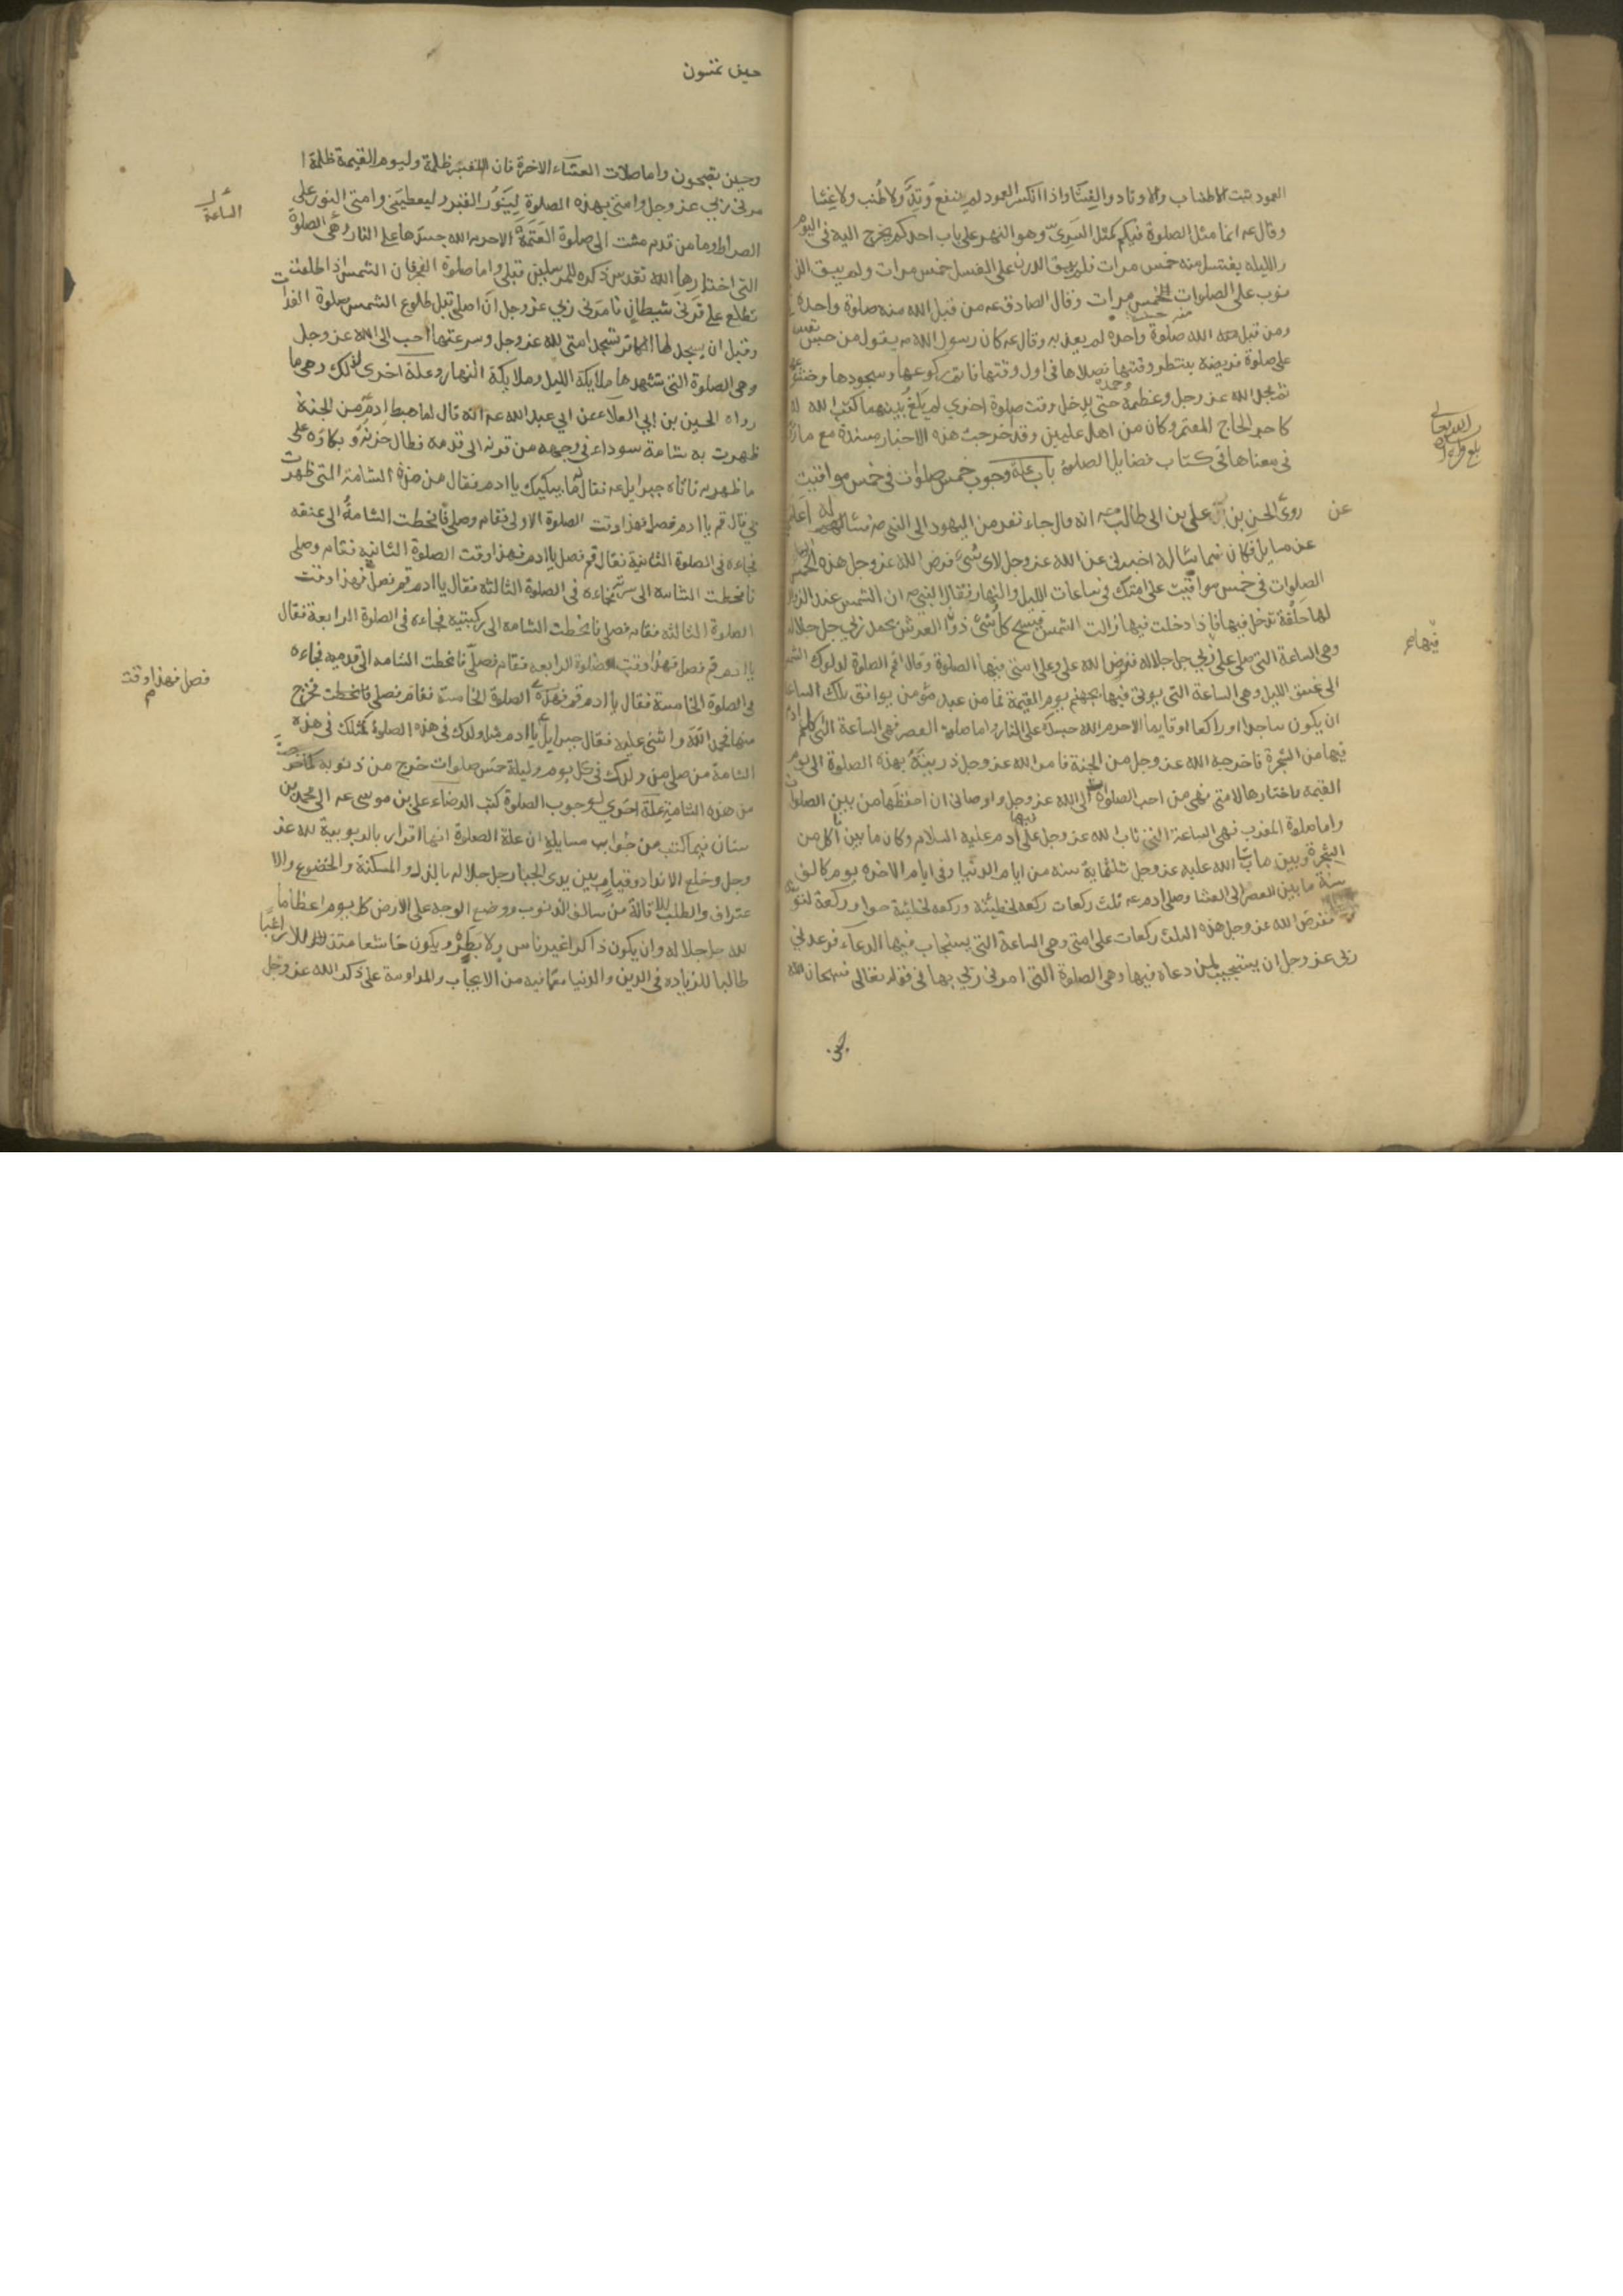 العمود يثبت الاطناب والاوتاد والغشا واذا انكسر العمود لم ينفع وتد ولا طنب ولا غشا
وقال عه انما مثل الصلوة فيكم كمثل السرى وهو النهر على باب احدكم يخرج اليه فى اليوم
والليله يغتسل منه خمس مرات فلم يبق الدرن على الغسل خمس مرات ولم يبق الذ
نوب على الصلوات الخمس مرات وقال الصادق عه من قبل الله منه صلوة واحدة
ومن قبل الله صلوة واحدة لم يعذبه وقال عه كان رسول الله صه يقول من حبس نفسه
على صلوة فريضة ينتظر وقتها فصلاها فى اول وقتها فاتم ركوعها وسجودها وخشوعها
ثم مجد الله عز وجل وعظمه وحمده حتى يدخل وقت صلوة اخرى لم يلغ بينهما كتب الله له
كاجر الحاج المعتمر وكان من اهل عليين وقد خرجت هذه الاخبار مسندة مع ما
فى معناها فى كتاب فضايل الصلوة باب علة وجوب خمس صلوات فى خمس مواقيت
روى الحسن بن على بن ابى طالب عه انه قال جاء نفر من اليهود الى النبى صه فساله اعلمهم
عن
عن مسايل فكان فيما ساله اخبرنى عن الله عز وجل لاى شىء فرض الله عز وجل هذه الخمس
الصلوات فى خمس مواقيت على امتك فى ساعات الليل والنهار فقال النبى صه ان الشمس عند الزوال
لها حلقة تدخل فيها فاذا دخلت فيها زالت الشمس فيسبح كل شىء دون العرش بحمد ربى جل جلاله
وهى الساعة التى يصلى على فيها ربى جل جلاله ففرض الله على وعلى امتى فيها الصلوة وقال اقم الصلوة لدلوك الشمس
الى غسق الليل وهى الساعة التى يوتى فيها بجهنم يوم القيمة فما من عبد مؤمن يوافق تلك الساعة
ان يكون ساجدا او راكعا او قايما الا حرم الله جسده على النار واما صلوة العصر فهى الساعة التى اكل ادم
فيها من الشجرة فاخرجه الله عز وجل من الجنة فامر الله عز وجل ذريته بهذه الصلوة الى يوم
القيمه واختارها لامتى فهى من احب الصلوات الى الله عز وجل واوصانى ان احفظها من بين الصلوات
واما صلوة المغرب فهى الساعة التى تاب الله عز وجل فيها على ادم عليه السلام وكان ما بين ما اكل من
الشجرة وبين ما تاب الله عليه عز وجل ثلثماية سنه من ايام الدنيا وفى ايام الاخره يوم كالف
سنة ما بين العصر الى العشا وصلى ادم عه ثلث ركعات ركعه لخطيئته وركعه لخطيئة حوا وركعة لتوبته
ففرض الله عز وجل هذه الثلث ركعات على امتى وهى الساعة التى يستجاب فيها الدعاء فوعدنى
ربى عز وجل ان يستجيب لمن دعاه فيها وهى الصلوة التى امرنى ربى بها فى قوله تعالى فسبحان الله
حين
حين تمسون
وحين تصبحون واما صلات العشاء الاخرة فان للقبر ظلمة وليوم القيمة ظلمة ا
مرنى ربى عز وجل وامتى بهذه الصلوة لينور القبر وليعطينى وامتى النور على
الصراط وما من قدم مشت الى صلوة العتمة الا حرم الله جسدها على النار وهى الصلوة
التى اختارها الله تقدس ذكره للمرسلين قبلى واما صلوة الفجر فان الشمس اذا طلعت
تطلع على قرنى شيطان فامرنى ربى عز وجل ان اصلى قبل طلوع الشمس صلوة الغداة
وقبل ان يسجد لها الكافر لتسجد امتى لله عز وجل وسرعتها احب الى الله عز وجل
وهى الصلوة التى تشهدها ملايكة الليل وملايكة النهار وعلة اخرى لذلك وهى ما
رواه الحسين بن ابى العلا عن ابى عبد الله عه انه قال لما هبط ادم من الجنة
ظهرت به شامة سوداء فى وجهه من قرنه الى قدمه فطال حزنه وبكاوه على
ما ظهر به فاتاه جبرايل عه فقال ما يبكيك يا ادم فقال من هذه الشامة التى ظهرت
بى قال قم يا ادم فصل فهذا وقت الصلوة الاولى فقام وصلى فانحطت الشامة الى عنقه
فجاءه فى الصلوة الثانية فقال قم فصل يا ادم فهذا وقت الصلوة الثانية فقام وصلى
فانحطت الشامة الى سرته فجاءه فى الصلوة الثالثة فقال يا ادم قم فصل فهذا وقت
الصلوة الثالثه فقام فصلى فانحطت الشامه الى ركبتيه فجاءه فى الصلوة الرابعة فقال
يا ادم قم فصل فهذا وقت الصلوة الرابعه فقام فصلى فانحطت الشامه الى قدميه فجاءه
فى الصلوة الخامسة فقال يا ادم قم فصل فهذا وقت الصلوة الخامسة فقام فصلى فانحطت فخرج
منها فحمد الله واثنى عليه فقال جبرايل يا ادم مثل ولدك فى هذه الصلوة كمثلك فى هذه
الشامة من صلى من ولدك فى كل يوم وليلة خمس صلوات خرج من ذنوبه كما خرجت
من هذه الشامة علة اخرى لوجوب الصلوة كتب الرضاء على بن موسى عه الى محمد بن
سنان فيما كتب من جواب مسايله ان علة الصلوة انها اقرار بالربوبية لله عز
وجل وخلع الانداد وقيام بين يدى الجبار جل جلاله بالذل والمسكنة والخضوع والا
عتراف والطلب للاقالة من سالف الذنوب ووضع الوجه على الارض كل يوم اعظاما
لله جل جلاله وان يكون ذاكرا غير ناس ولا بطر ويكون خاشعا متذللا راغبا
طالبا للزياده فى الدين والدنيا مع ما فيه من الايجاب والمداومة على ذكر الله عز وجل
الساعة
فصل فهذا وقت